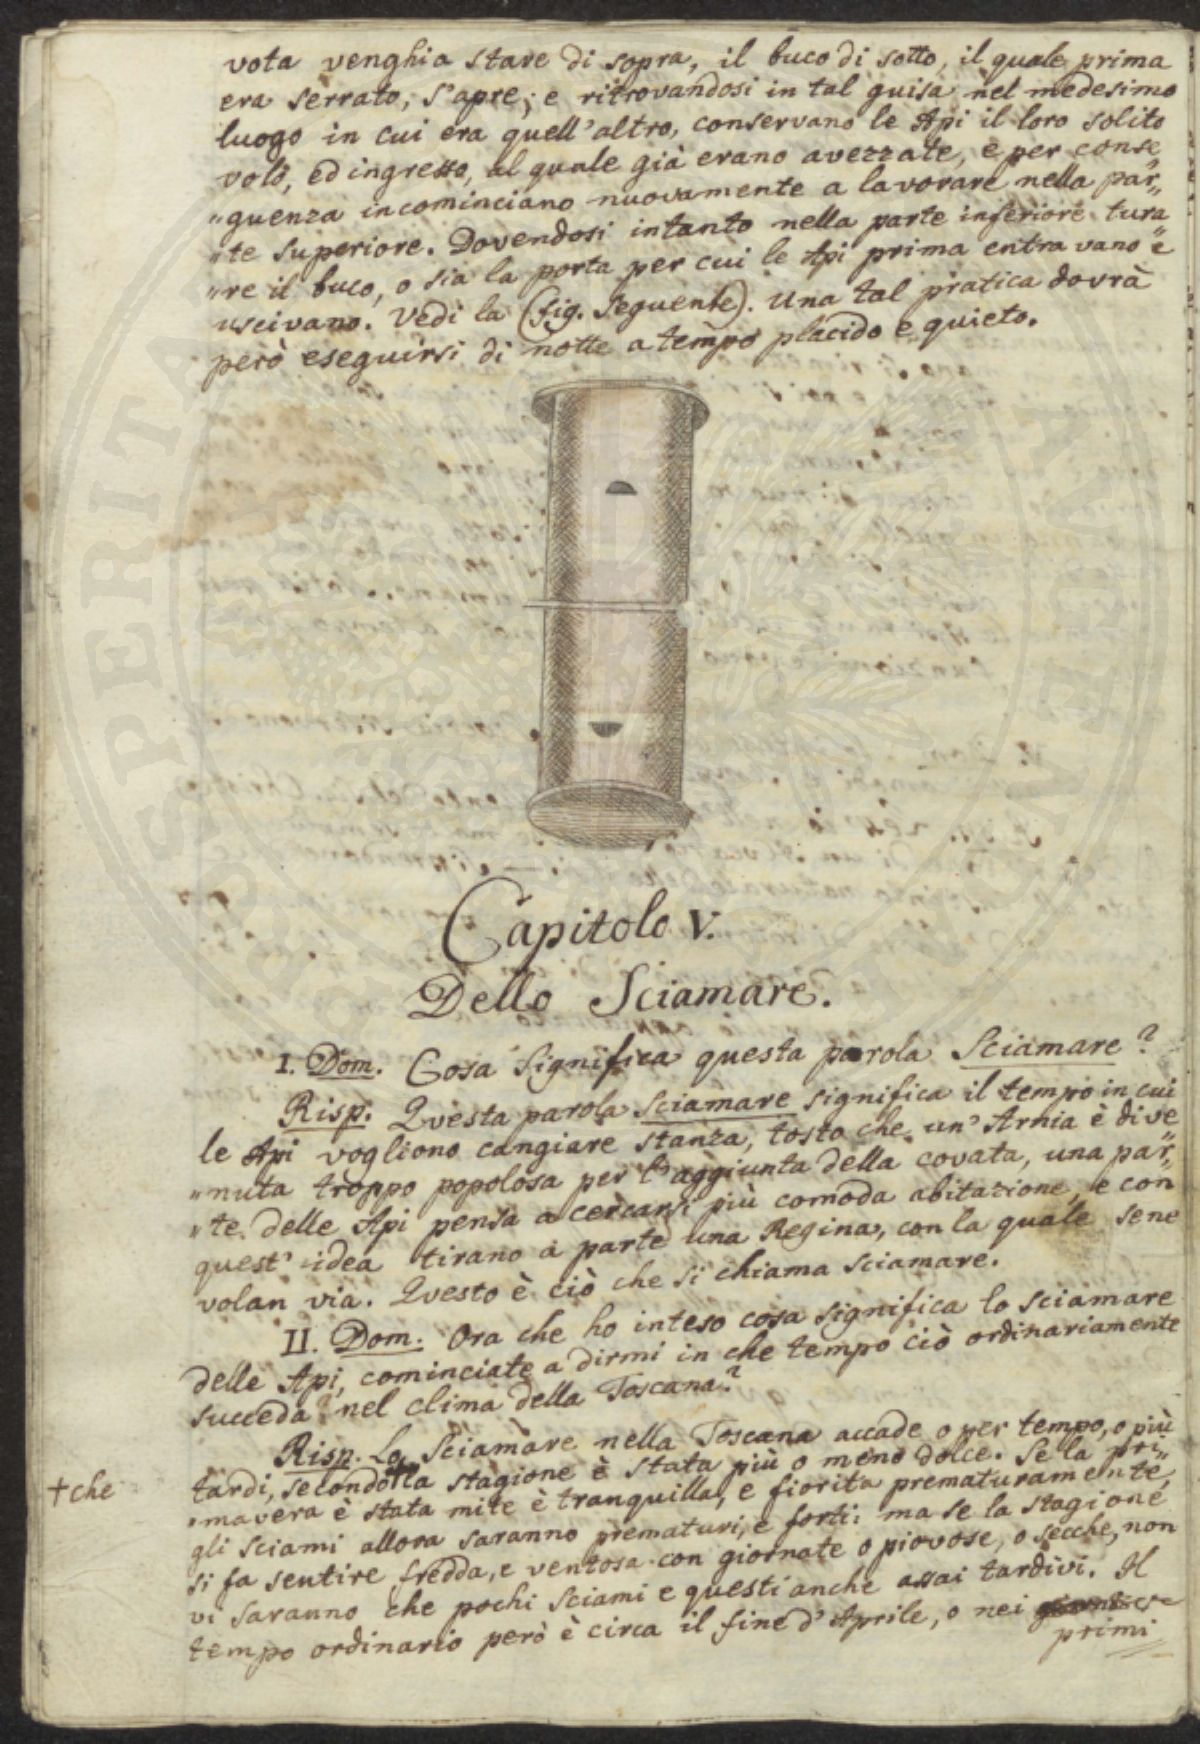 vota venghia stare di sopra, il buco di sotto, il quale prima
era serrato, s'apre; e ritrovandosi in tal guisa nel medesimo
luogo in cui era quell'altro, conservano le Api il loro solito
volo, ed ingresso, al quale già erano avezzate, e per conse„
„guenza incominciano nuovamente a lavorare nella par„
„te superiore. Dovendosi intanto nella parte inferiore tura„
„re il buco, o sia la porta per cui le Api prima entravano e
uscivano. Vedi la (fig. Seguente). Una tal pratica dovrà
però eseguirsi di notte a tempo placido e quieto.
Capitolo V.
Dello Sciamare.
I. Dom. Cosa Significa questa parola Sciamare?
Risp. Questa parola Sciamare significa il tempo in cui
le Api vogliono cangiare stanza, tosto che un'Arnia è dive„
„nuta troppo popolosa per l'aggiunta della covata, una par„
„te delle Api pensa a cercarsi più comoda abitazione, e con
quest'idea tirano a parte una Regina, con la quale sene
volan via. Questo è ciò che si chiama sciamare.
II. Dom. Ora che ho inteso cosa significa lo sciamare
delle Api, cominciate a dirmi in che tempo ciò ordinariamente
succeda nel clima della Toscana?
Risp. Lo Sciamare nella Toscana accade o per tempo, o più
tardi, secondo † la stagione è stata più o meno dolce. Se la pri„
† che
„mavera è stata mite è tranquilla, e fiorita prematuramente,
gli sciami allora saranno prematuri, e forti: ma se la stagione
si fa sentire fredda, e ventosa con giornate o piovose, o secche, non
vi saranno che pochi sciami e questi anche assai tardivi. Il
tempo ordinario però è circa il fine d'Aprile, o nei
primi
SPERITA